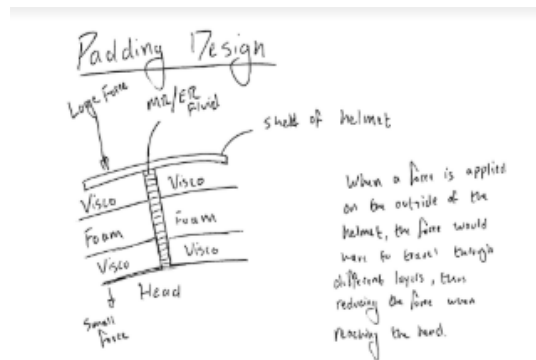 Padding Design
Large Force
MR/ER
Fluid
shell of helmet
Visco
Visco
Foam
Foam
Visco
Visco
Head
Small
force
When a force is applied
on the outside of the
helmet, the force would
have to travel through
different layers, thus
reducing the force when
reaching the head.